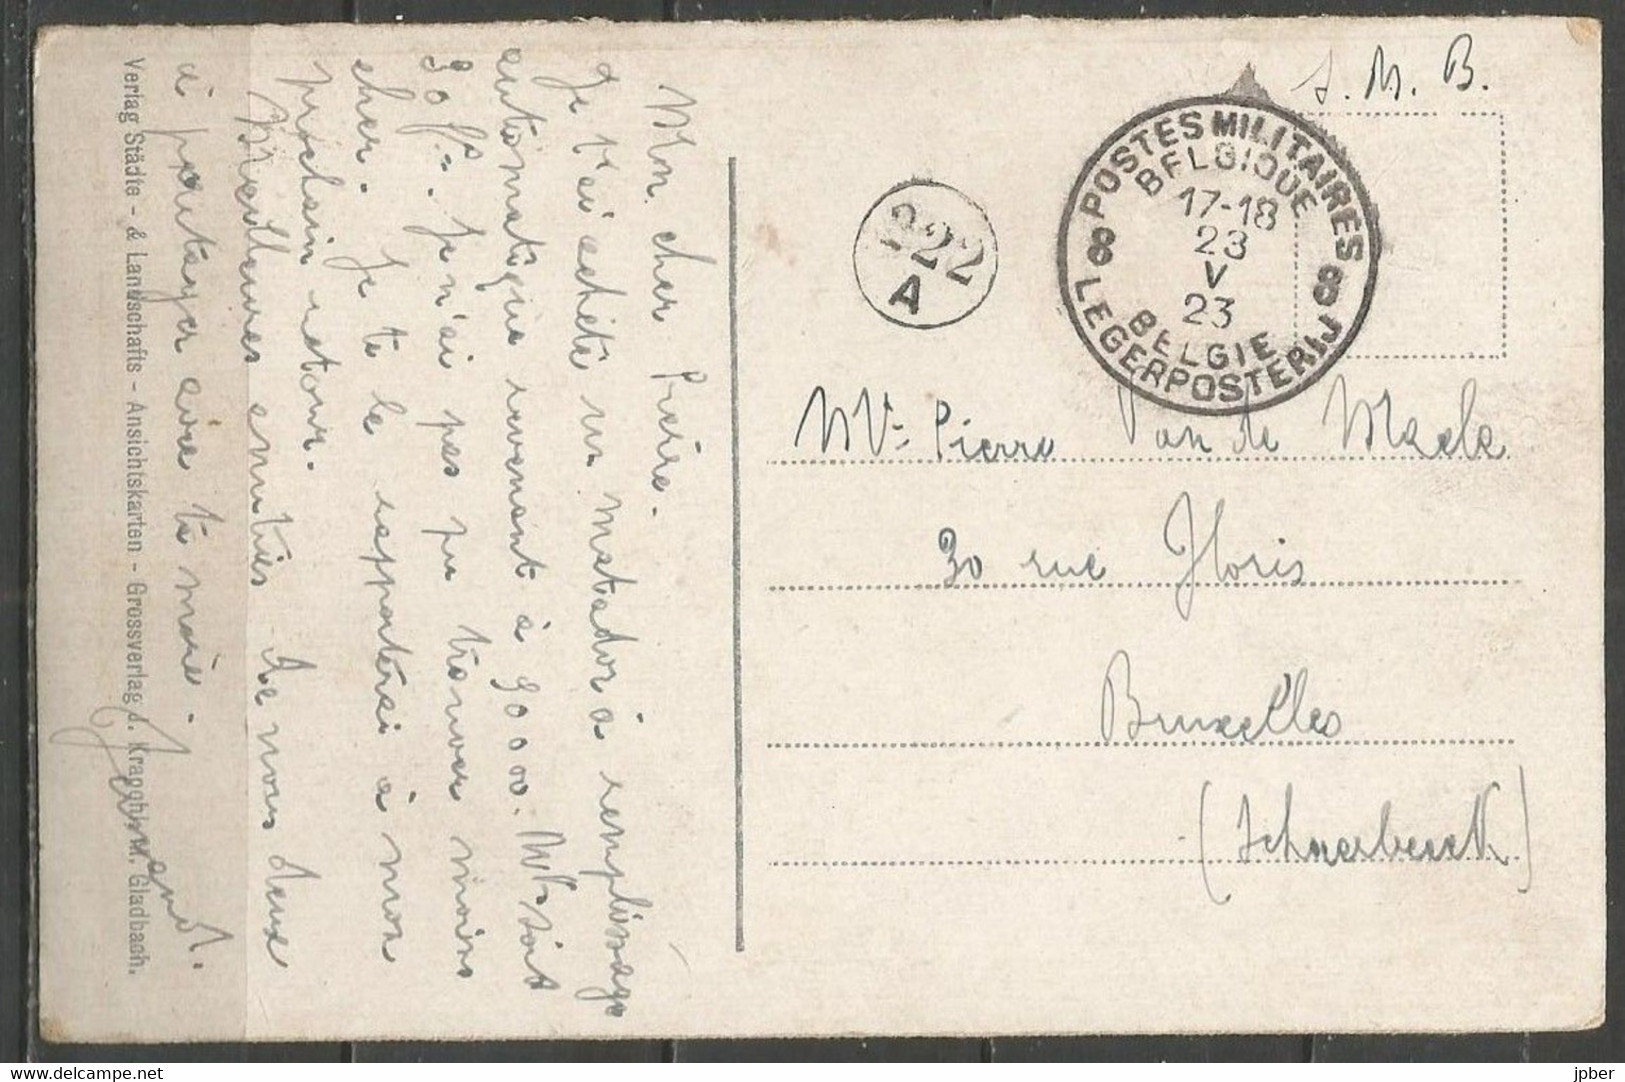 Mon cher Pierre.
Je t'ai acheté un matador à remplissage
automatique revenant à 90000. Mks soit
30 frs. Je n'ai pas pu trouver moins
cher. Je te le rapporterai à mon
prochain retour.
Meilleures amitiés de nous deux
à partager avec ta mère.
Verlag Städte - & Landschafts - Ansichtskarten - Grossverlag J. M. Gladbach.
222
A
POSTES MILITAIRES
BELGIQUE
17-18
23
V
23
BELGIE
LEGERPOSTERIJ
8 8
S. M. B.
Mr Pierre Van de Maele
30 rue Floris
Bruxelles
(Schaerbeeck)
Delcampe.net
jpber